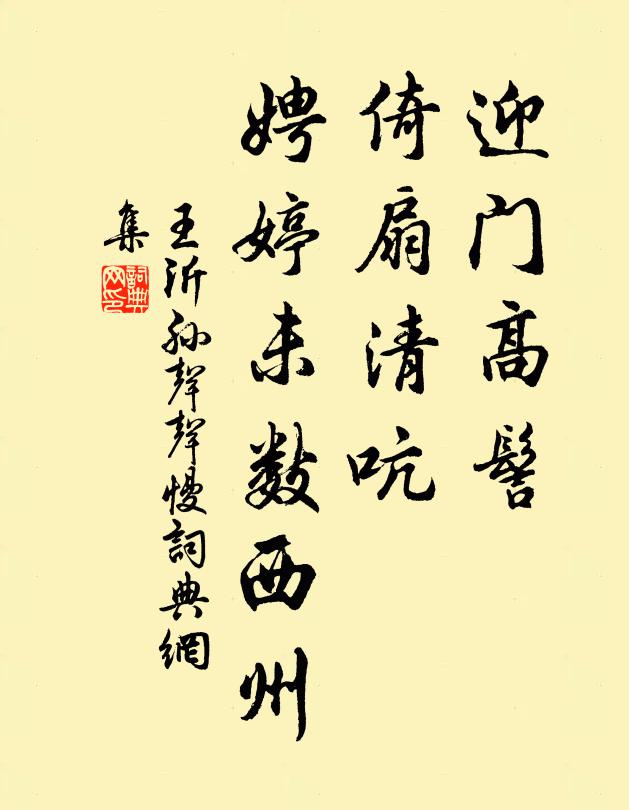 迎门高髻
倚扇清吭
娉婷未数西州
王沂孙聲聲慢詞典網
集
詞典网印